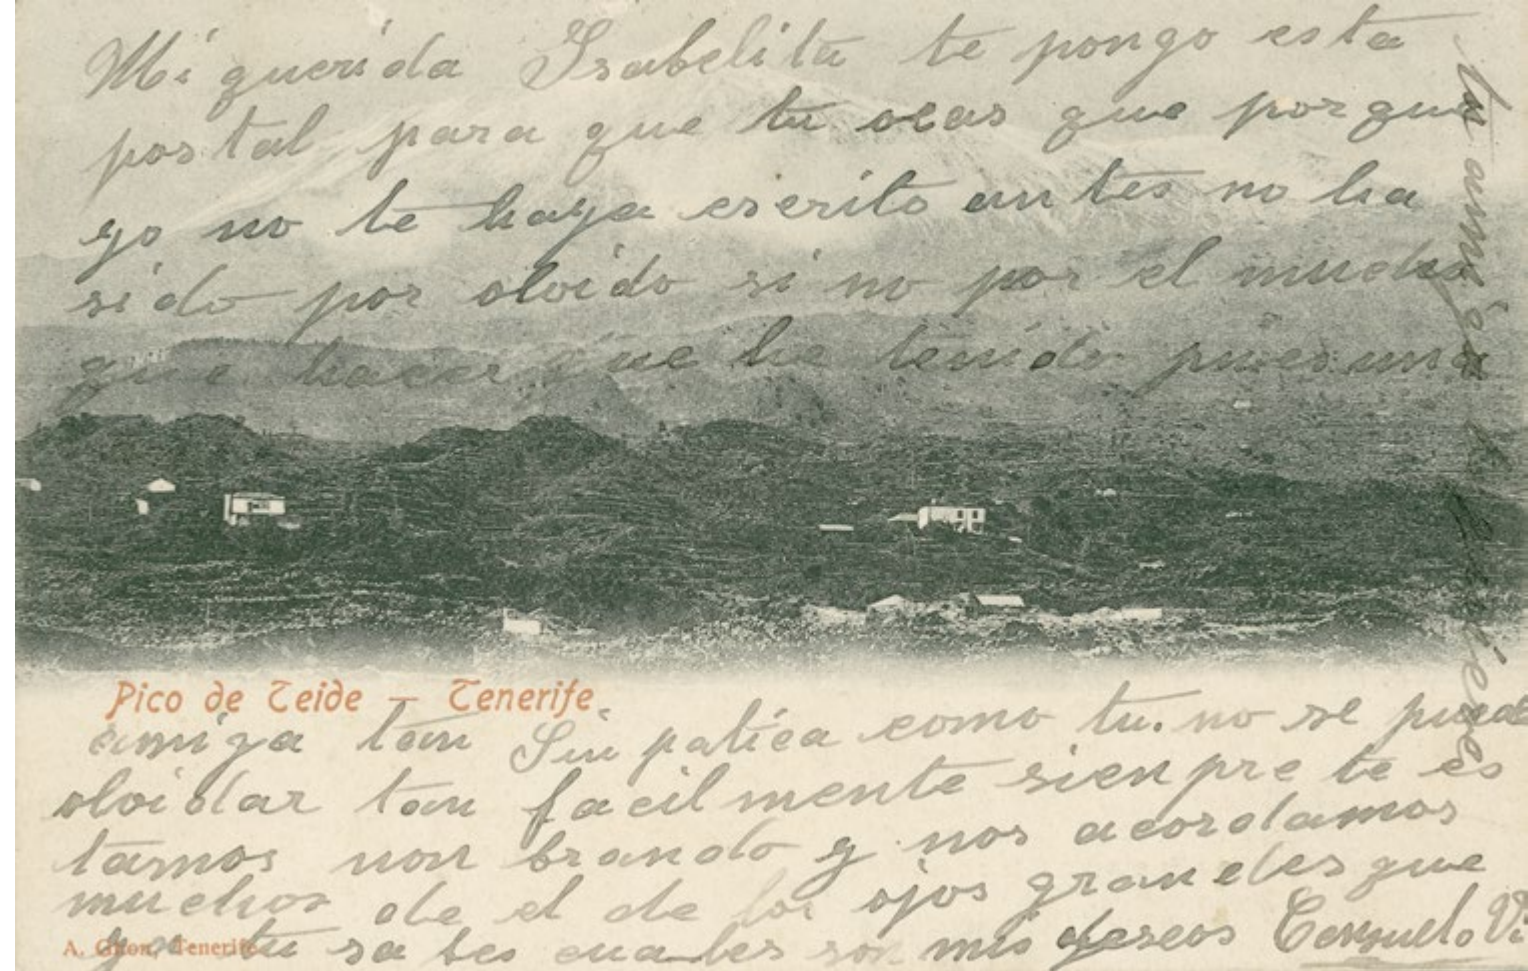 Mi querida Isabelita te pongo esta
postal para que tu veas que porque
yo no te haya escrito antes no ha
sido por olvido si no por el mucho
que hacer que he tenido pues una
Pico de Teide – Tenerife
amiga tan Sinpatica como tu. no se puede
olvidar tan facilmente sienpre te es
tamos nonbrando y nos acordamos
muchos de el de los ojos grandes que
ya tu sabes cuales son mis deseos Consuelo Vi
A. Tenerife
tu amiga te quiere